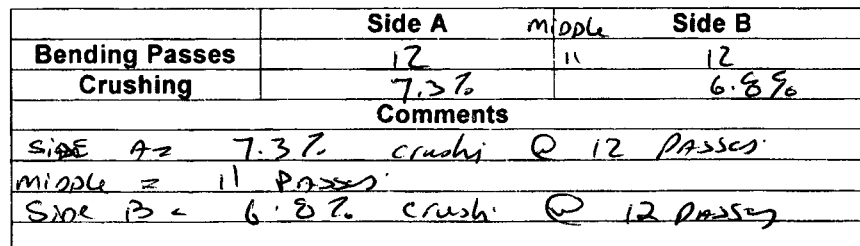 Side A middle Side B
Bending Passes 12 11 12
Crushing 7.3% 6.8%
Comments
SIDE A = 7.3% crushi @ 12 PASSES.
middle = 11 PASSES.
Side B = 6.8% crush. @ 12 PASSES